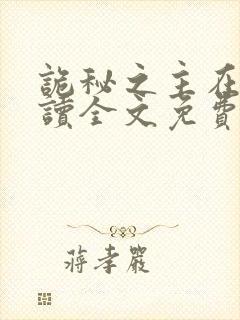 詭秘之主在
讀全文免費
蔣孝嚴